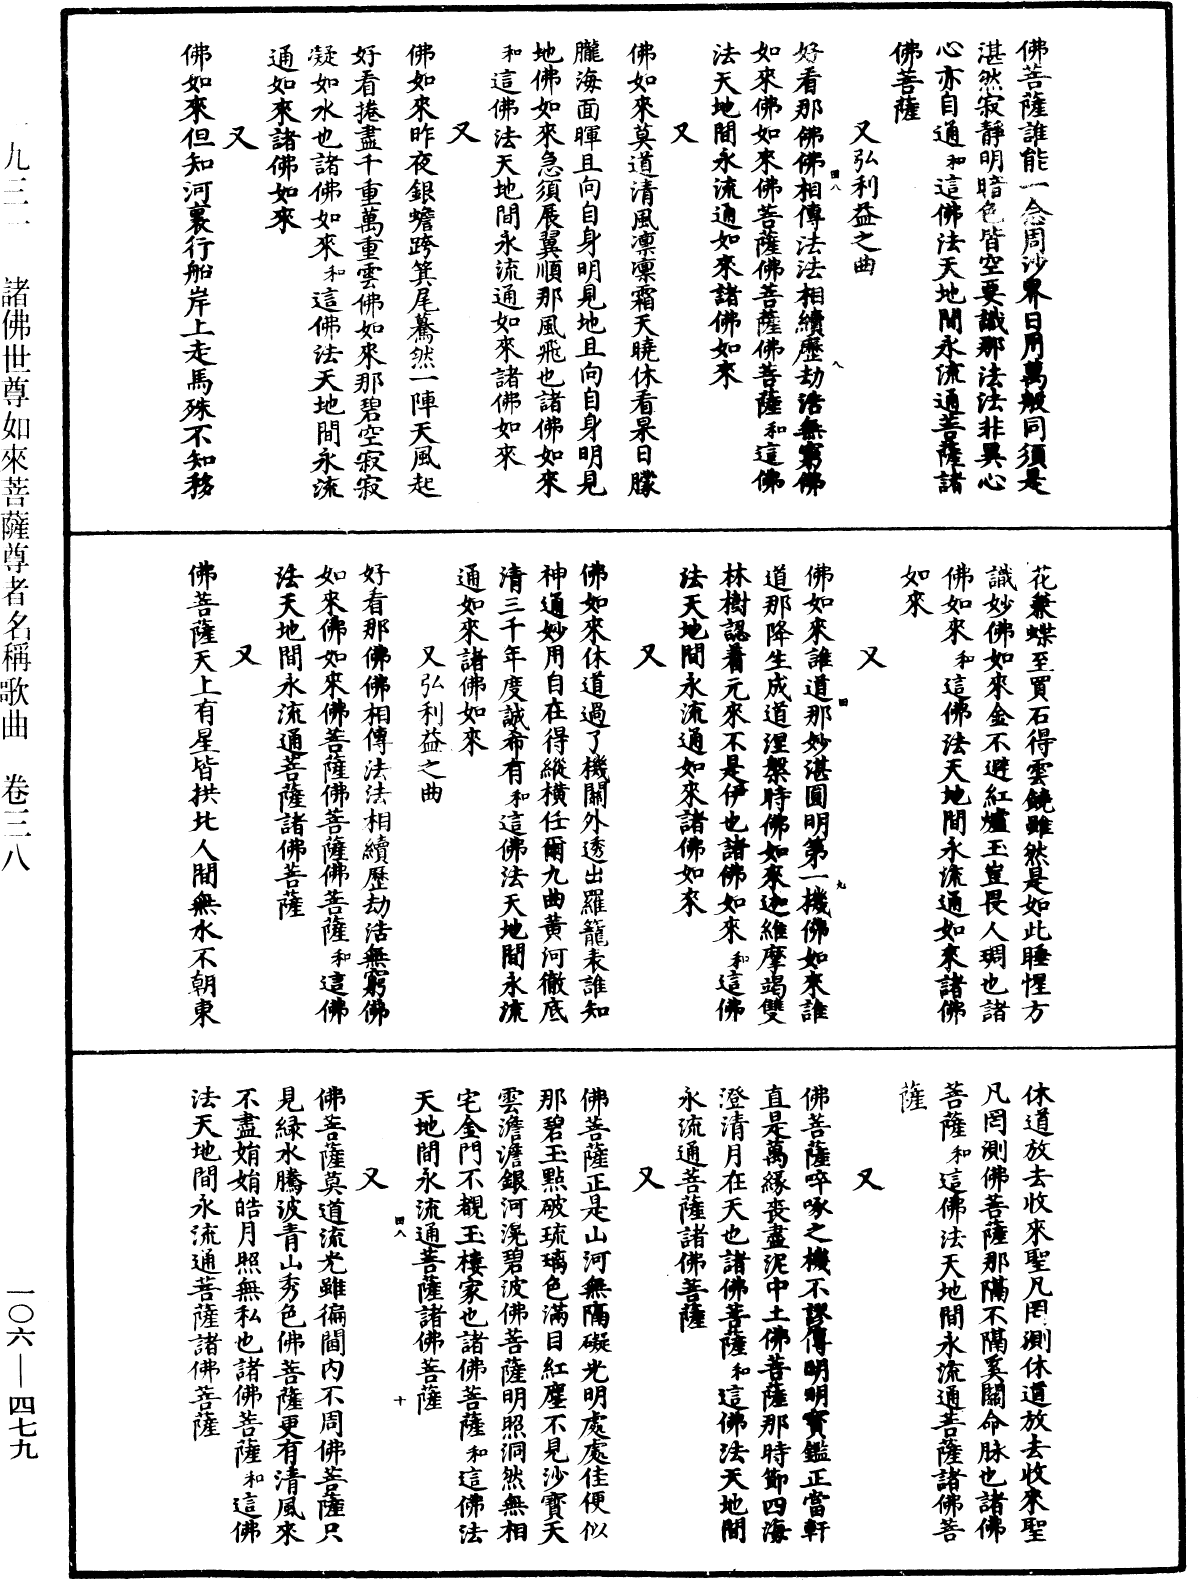 佛菩薩誰能一念周沙界日用萬般同須是
湛然寂靜明暗色皆空要識那法法非異心
心亦自通和這佛法天地間永流通菩薩諸
佛菩薩
又弘利益之曲
好看那佛佛相傳法法相續歷劫活無窮佛
如來佛如來佛菩薩佛菩薩佛菩薩和這佛
法天地間永流通如來諸佛如來
又
佛如來莫道清風凛凛霜天曉休看杲日朦
朧海面暉且向自身明見地且向自身明見
地佛如來急須展翼順那風飛也諸佛如來
和這佛法天地間永流通如來諸佛如來
又
佛如來昨夜銀蟾跨箕尾驀然一陣天風起
好看捲盡千重萬重雲佛如來那碧空寂寂
凝如水也諸佛如來和這佛法天地間永流
通如來諸佛如來
又
佛如來但知河裏行船岸上走馬殊不知移
花兼蝶至買石得雲饒雖然是如此睡惺方
識妙佛如來金不避紅爐玉豈畏人琱也諸
佛如來和這佛法天地間永流通如來諸佛
如來
又
佛如來誰道那妙湛圓明第一機佛如來誰
道那降生成道涅槃時佛如來迦維摩竭雙
林樹認着元來不是伊也諸佛如來和這佛
法天地間永流通如來諸佛如來
又
佛如來休道過了機關外透出羅籠表誰知
神通妙用自在得縱橫任爾九曲黄河徹底
清三千年度誠希有和這佛法天地間永流
通如來諸佛如來
又弘利益之曲
好看那佛佛相傳法法相續歷劫活無窮佛
如來佛如來佛菩薩佛菩薩佛菩薩和這佛
法天地間永流通菩薩諸佛菩薩
又
佛菩薩天上有星皆拱北人間無水不朝東
休道放去收來聖凡罔測休道放去收來聖
凡罔測佛菩薩那隔不隔奚關命脉也諸佛
菩薩和這佛法天地間永流通菩薩諸佛菩
薩
又
佛菩薩啐啄之機不謬傳明明寶鑑正當軒
直是萬緣喪盡泥中土佛菩薩那時節四海
澄清月在天也諸佛菩薩和這佛法天地間
永流通菩薩諸佛菩薩
又
佛菩薩正是山河無隔礙光明處處佳便似
那碧玉點破琉璃色滿目紅塵不見沙寶天
雲澹澹銀河滉碧波佛菩薩明照洞然無相
宅金門不覩玉樓家也諸佛菩薩和這佛法
天地間永流通菩薩諸佛菩薩
又
佛菩薩莫道流光雖徧閶内不周佛菩薩只
見緑水騰波青山秀色佛菩薩更有清風來
不盡姷姷皓月照無私也諸佛菩薩和這佛
法天地間永流通菩薩諸佛菩薩
四八
八
四
九
四八
十
一九三一 諸佛世尊如來菩薩尊者名稱歌曲 卷三八
一〇六—四七九